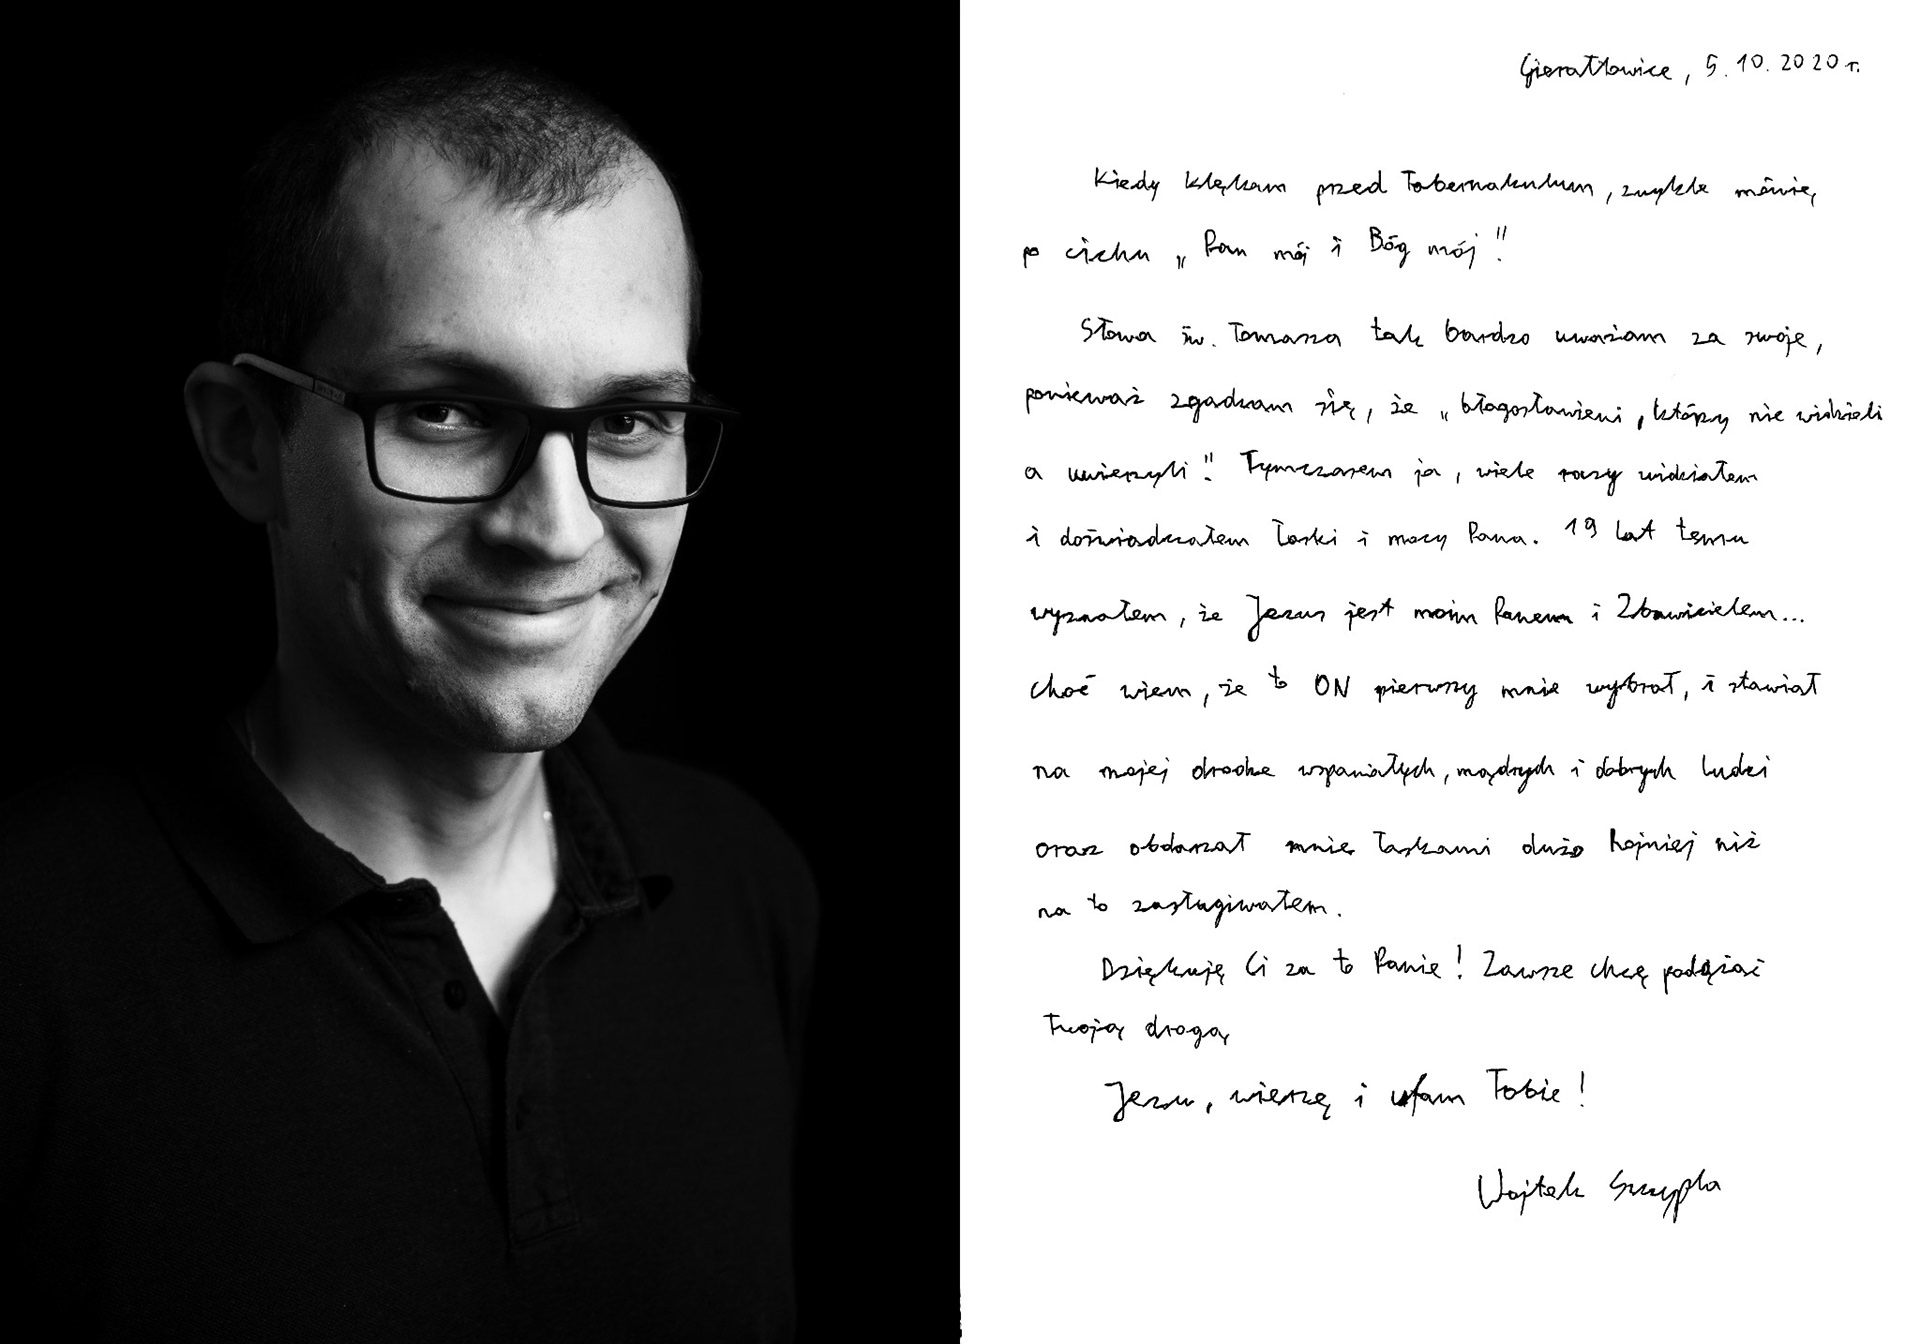 Gierałtowice, 5.10.2020 r.
Kiedy klękam przed Tabernakulum, zwykle mówię
po cichu „Pan mój i Bóg mój"!
Słowa św. Tomasza tak bardzo uważam za swoje,
ponieważ zgadzam się, że „błogosławieni, którzy nie widzieli
a uwierzyli". Tymczasem ja, wiele razy widziałem
i doświadczałem łaski i mocy Pana. 19 lat temu
wyznałem, że Jezus jest moim Panem i Zbawicielem...
choć wiem, że to ON pierwszy mnie wybrał, i stawiał
na mojej drodze wspaniałych, mądrych i dobrych ludzi
oraz obdarzał mnie łaskami dużo hojniej niż
na to zasługiwałem.
Dziękuję Ci za to Panie! Zawsze chcę podążać
Twoją drogą
Jezu, wierzę i ufam Tobie!
Wojtek Szczypka